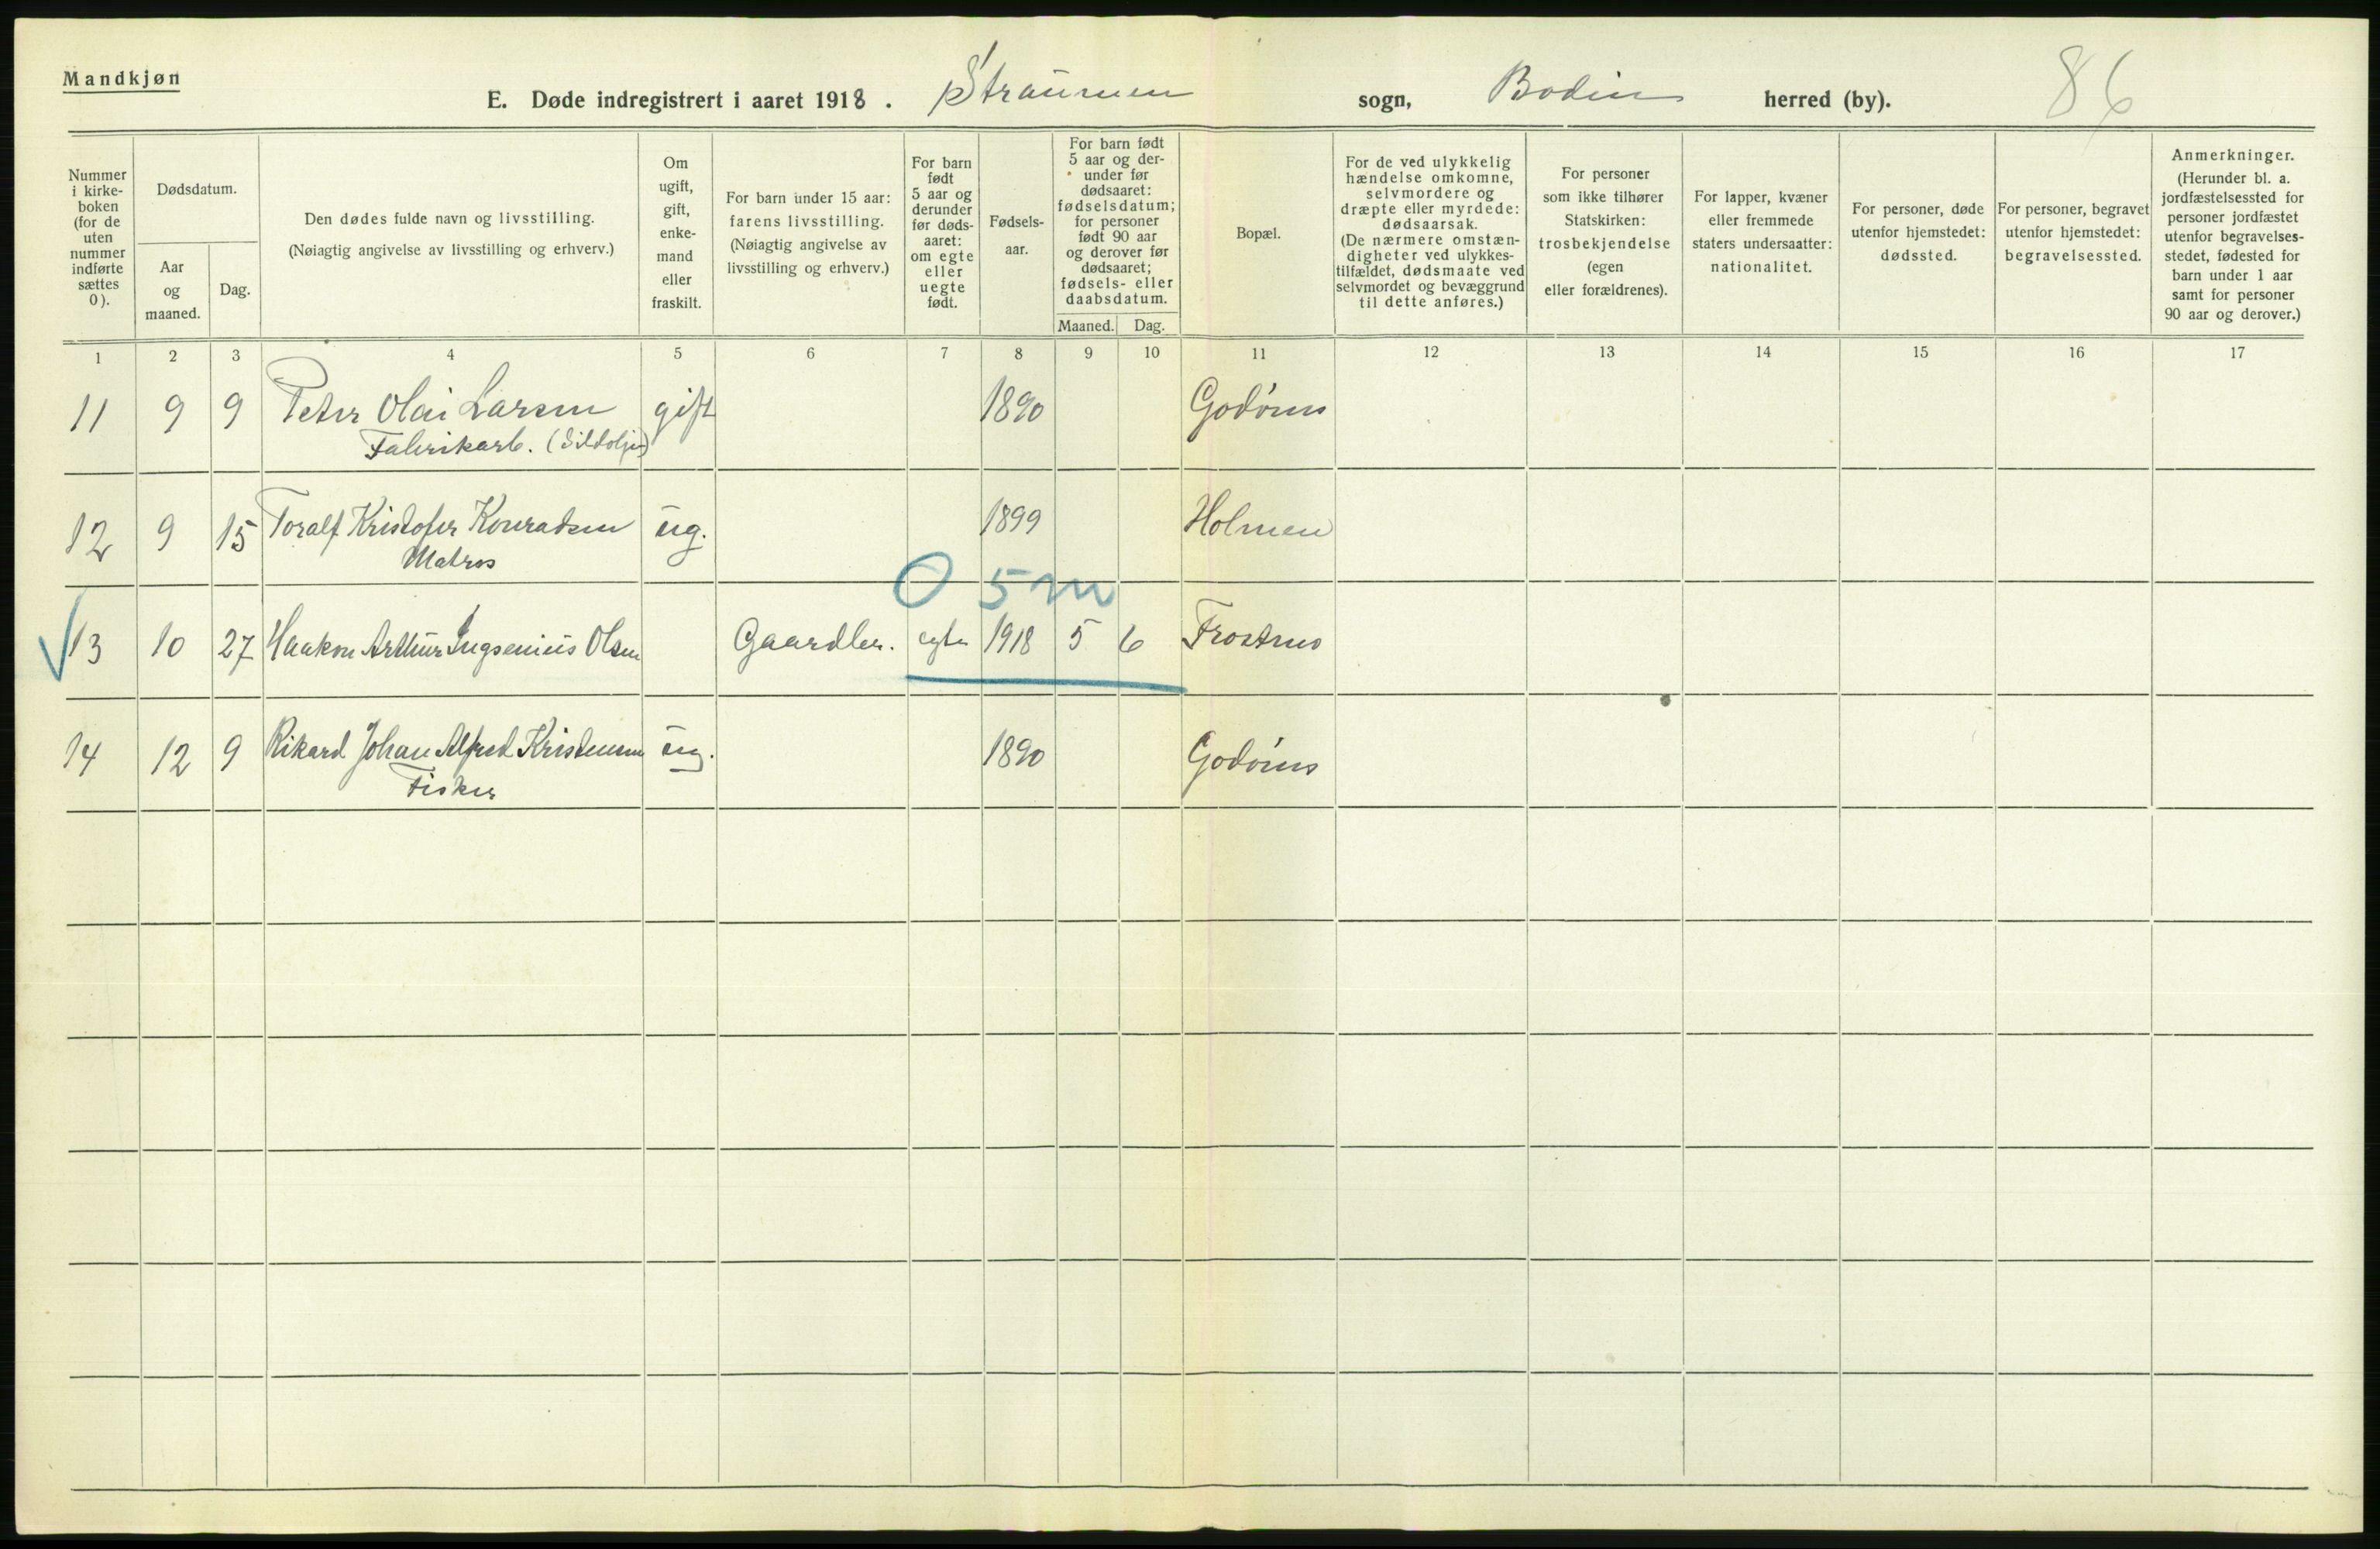 Mandkjøn
E. Døde indregistrert i aaret 1918. Straumen sogn, Bodin herred (by). 86
Nummer i kirke-boken (for de uten nummer indførte sættes 0).
Dødsdatum.
Aar og maaned.
Dag.
Den dødes fulde navn og livsstilling.
(Nøiagtig angivelse av livsstilling og erhverv.)
Om ugift, gift, enke-mand eller fraskilt.
For barn under 15 aar: farens livsstilling.
(Nøiagtig angivelse av livsstilling og erhverv.)
For barn født 5 aar og derunder før døds-aaret: om egte eller uegte født.
Fødsels-aar.
For barn født 5 aar og der-under før dødsaaret: fødselsdatum; for personer født 90 aar og derover før dødsaaret; fødsels- eller daabsdatum.
Maaned. Dag.
Bopæl.
For de ved ulykkelig hændelse omkomne, selvmordere og dræpte eller myrdede: dødsaarsak.
(De nærmere omstæn-digheter ved ulykkes-tilfældet, dødsmaate ved selvmordet og bevæggrund til dette anføres.)
For personer som ikke tilhører Statskirken: trosbekjendelse (egen eller forældrenes).
For lapper, kvæner eller fremmede staters undersaatter: nationalitet.
For personer, døde utenfor hjemstedet: dødssted.
For personer, begravet utenfor hjemstedet: begravelsessted.
Anmerkninger.
(Herunder bl. a. jordfæstelsessted for personer jordfæstet utenfor begravelses-stedet, fødested for barn under 1 aar samt for personer 90 aar og derover.)
1 2 3 4 5 6 7 8 9 10 11 12 13 14 15 16 17
11 9 9 Peter Olai Larsen gift 1890 Godønes
Fabrikarb. (Sildolje)
12 9 15 Toralf Kristofer Konradsen ug. 1899 Holmen
Matros
0 5 m
13 10 27 Haakon Arthur Ingsenius Olsen Gaardbr. egte 1918 5 6 Frostmo
14 12 9 Rikard Johan Alfred Kristensen ug. 1890 Godønes
Fisker